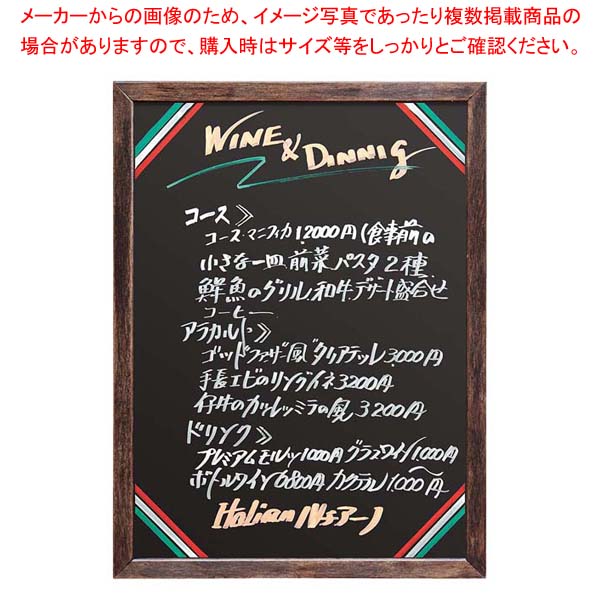 メーカーからの画像のため、イメージ写真であったり複数掲載商品の
場合がありますので、購入時はサイズ等をしっかりとご確認ください。
WINE & DINNIG
コース》
コース・マニフィカ 12000円(食事前の
小さな一皿、前菜、パスタ2種
鮮魚のグリル、和牛、デザート盛合せ
コーヒー
アラカルト》
ゴッドファザー風"タリアテッレ 3,000円
手長エビのリングイネ 3200円
仔牛のカツレツミラノ風 3200円
ドリンク》
プレミアムモルツ 1000円 グラスワイン 1,000円
ボトルワイン 6800円 カクテル 1,000円〜
Italian